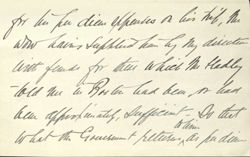 for his per diem expenses on his trip, the
now having supplied him by my direction
with funds for them which Mr Hadley
told me in Boston had been, or had
been approximately, sufficient. So that
to him
what the Government returns, as per diem